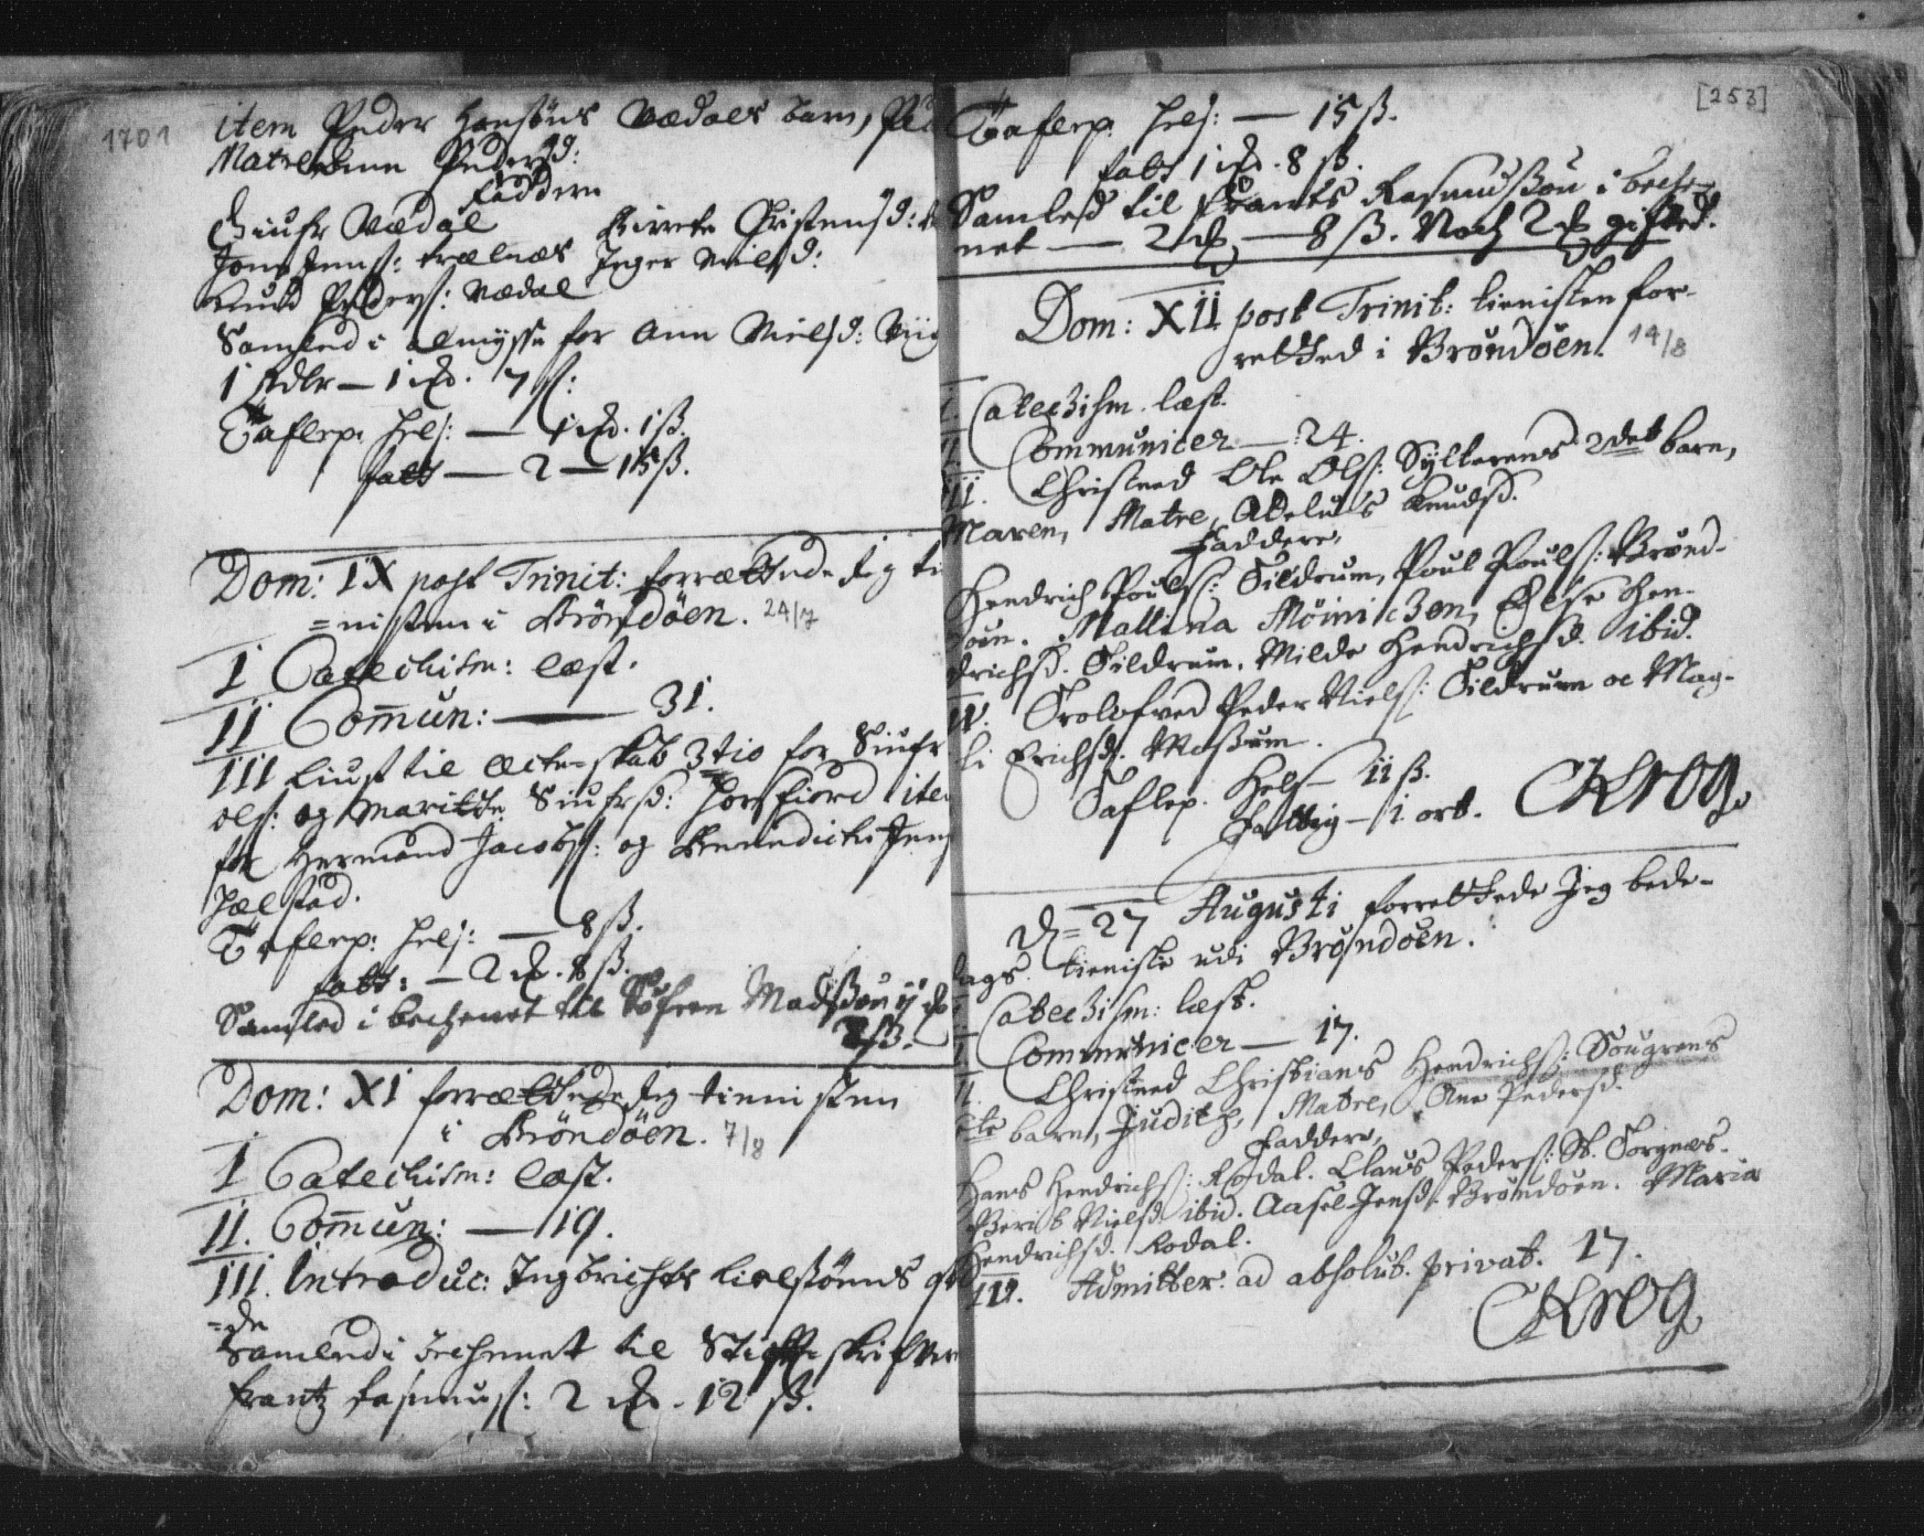 1701
item Peder Hansøns Vædals barn,
Matre Anne Pedersd:
Faddere
Siufr Vædal Birrete Christensd:
Jon Jenss: trælnæs Inger Nielsd:
Knud Peders: Vædal
Samled i almysse for Ann Nielsd:
1 Rdlr — 1 7 ß:
Taflep: hels: — 1 1 ß.
fatt — 2 — 15 ß.
Dom: IX post Trinit: forrættede Jeg ti
=nisten i Bröndöen. 24/7
I Catechism: læst.
II Com̄un: — 31.
III liust til ecte=skab 3tio for Siufr
ols: og Maritte Siufrsd: Horsfiord item
for Hermand Jacobs: og Benedicte Jens
Hælstad.
Taflep: hels: — 8 ß.
fatt: — 2 8 ß.
Samled i bechenet til Søfren Madsßøn ij
2 ß.
Dom: XI forrættede Jeg tienisten
i Bröndöen. 7/8
I Catechism: læst.
II. Com̄un: — 19.
III. Introduc: Ingbrichts
=de
Samled i bechenet til Stifftskrifver
Frantz Rasmuss: 2 12 ß.
[253]
Taflep: hels: — 15 ß.
fatt 1 8 ß.
Samlesd til Frants Rasmusßøn i beche-
net — 2 — 8 ß. Noch 2 gifted.
Dom: XII post Trinit: tienisten for-
rettted i Brøndøen. 14/8
I. Catechism. læst.
II. Communicer — 24.
III. Christned Ole Ols: Sylterens 2det barn,
Maren, Matre, Adeluds Knudsd.
Faddere,
Hendrich Pouls: Tildrum, Poul Pouls: Brønd-
øen. Mallina Møinichzen, Else Hen-
drichsd. Tildrum. Milde Hendrichsd. ibid.
IV. Trolofved Peder Niels: Tildrum oc Mag-
li Erichsd. Moßum.
Taflep. Hels — 11 ß.
Fattig — 1 ort. CKrog.
D= 27 Augusti forrettede Jeg bede-
dags tieniste udi Brøndøen.
I. Catechism: læst.
I. Communicer — 17.
II. Christned Christians Hendrichs: Sougrens
barn, Judith, Matre, Ane Pedersd.
Faddere,
Hans Hendrichs: Rodal. Claus Peders: St. Torgnæs.
Berit Nielsd. ibid. Aasel Jensd. Brøndøen. Maria
Hendrichsd. Rodal.
III. Admitter. ad absolut. privat. 17.
CKrog